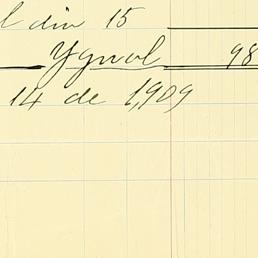 l din 15
Ygual 98
14 de 1,909